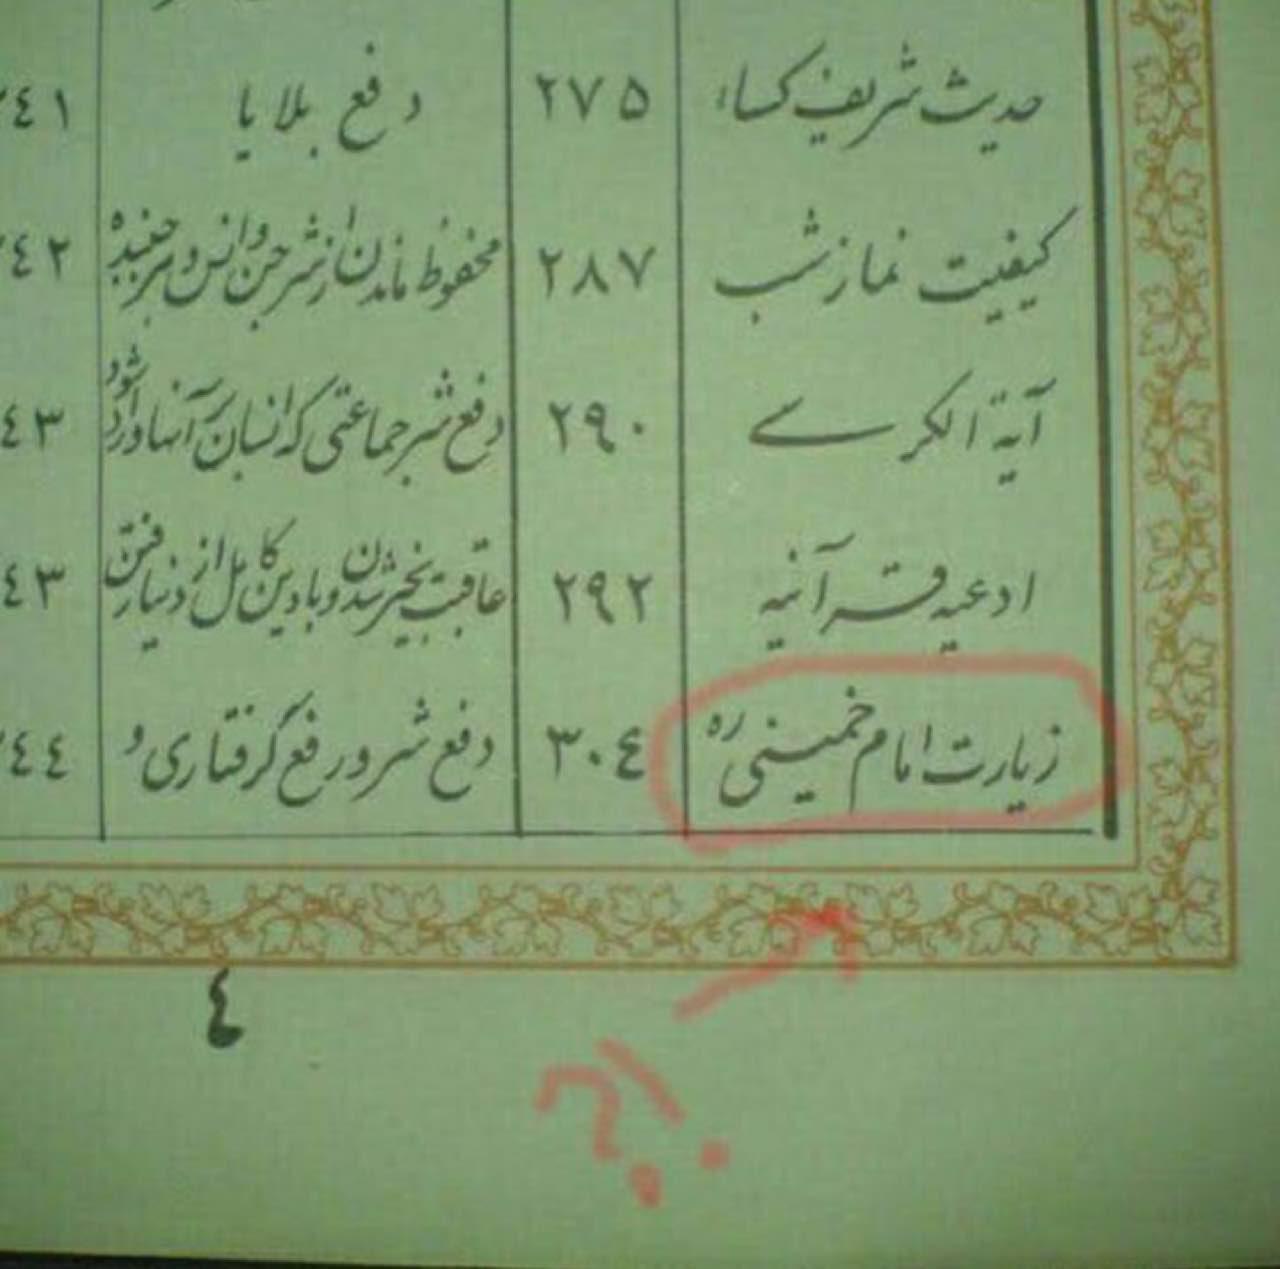 حدیث شریف کساء ۲۷۵ دفع بلایا ۲٤۱
کیفیت نماز شب ۲۸۷ محفوظ ماندن از شر جن و انس و هر جنبنده ٤۲
آیة الکرسے ۲۹۰ دفع شر جماعتی که انسان بر آنها وارد شود ٤۳
ادعیه قرآنیه ۲۹۲ عاقبت بخیر شدن و با دین کامل از دنیا رفتن ٤۳
زیارت امام خمینی ره ۳۰٤ دفع شر و رفع گرفتاری و ۲٤٤
٤
?!